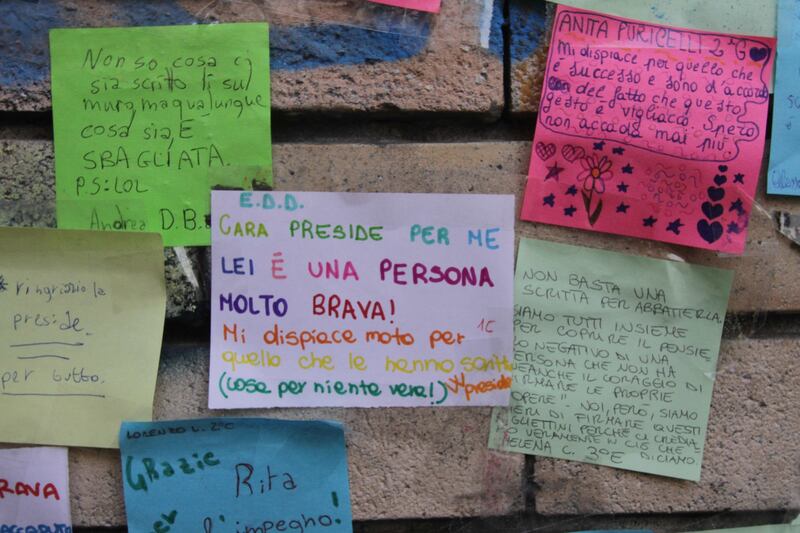 Non so cosa ci
sia scritto lì sul
muro, ma qualungue
cosa sia, È
SBAGLIATA.
P.S: LOL
Andrea D.B.
ANITA PURICELLI 2°G
Mi dispiace per quello che
è successo e sono d'accordo
con del fatto che questo
gesto è vigliacco Spero
non accada mai più.
E.D.D.
CARA PRESIDE PER ME
LEI É UNA PERSONA
MOLTO BRAVA!
Mi dispiace moto per 1C
quello che le hanno scritto
(cose per niente vere!) W preside
* ringrazio la
preside.
per tutto.
NON BASTA UNA
SCRITTA PER ABBATTERLA.
SIAMO TUTTI INSIEME
PER COPRIRE IL PENSIE
RO NEGATIVO DI UNA
PERSONA CHE NON HA
NEANCHE IL CORAGGIO DI
FIRMARE LE PROPRIE
"OPERE". NOI, PERÒ, SIAMO
FIERI DI FIRMARE QUESTI
BIGLIETTINI PERCHÈ CI CREDIA-
MO VERAMENTE IN CIÒ CHE
DICIAMO
HELENA C. 3°E
LORENZO L. 2°C
GRazie Rita
per l'impegno!
BRAVA